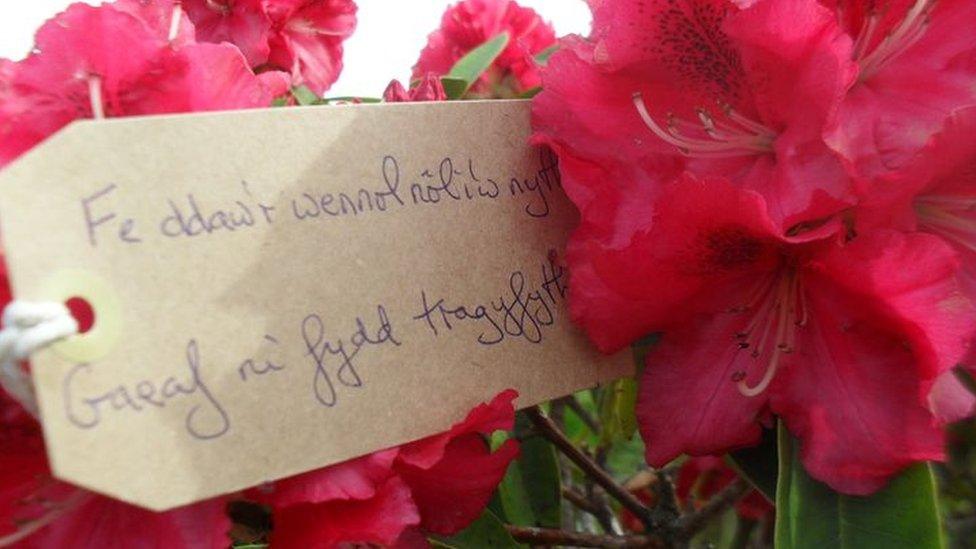 Fe ddaw'r wennol nôl i'w nyth
Gaeaf ni fydd tragyfyth